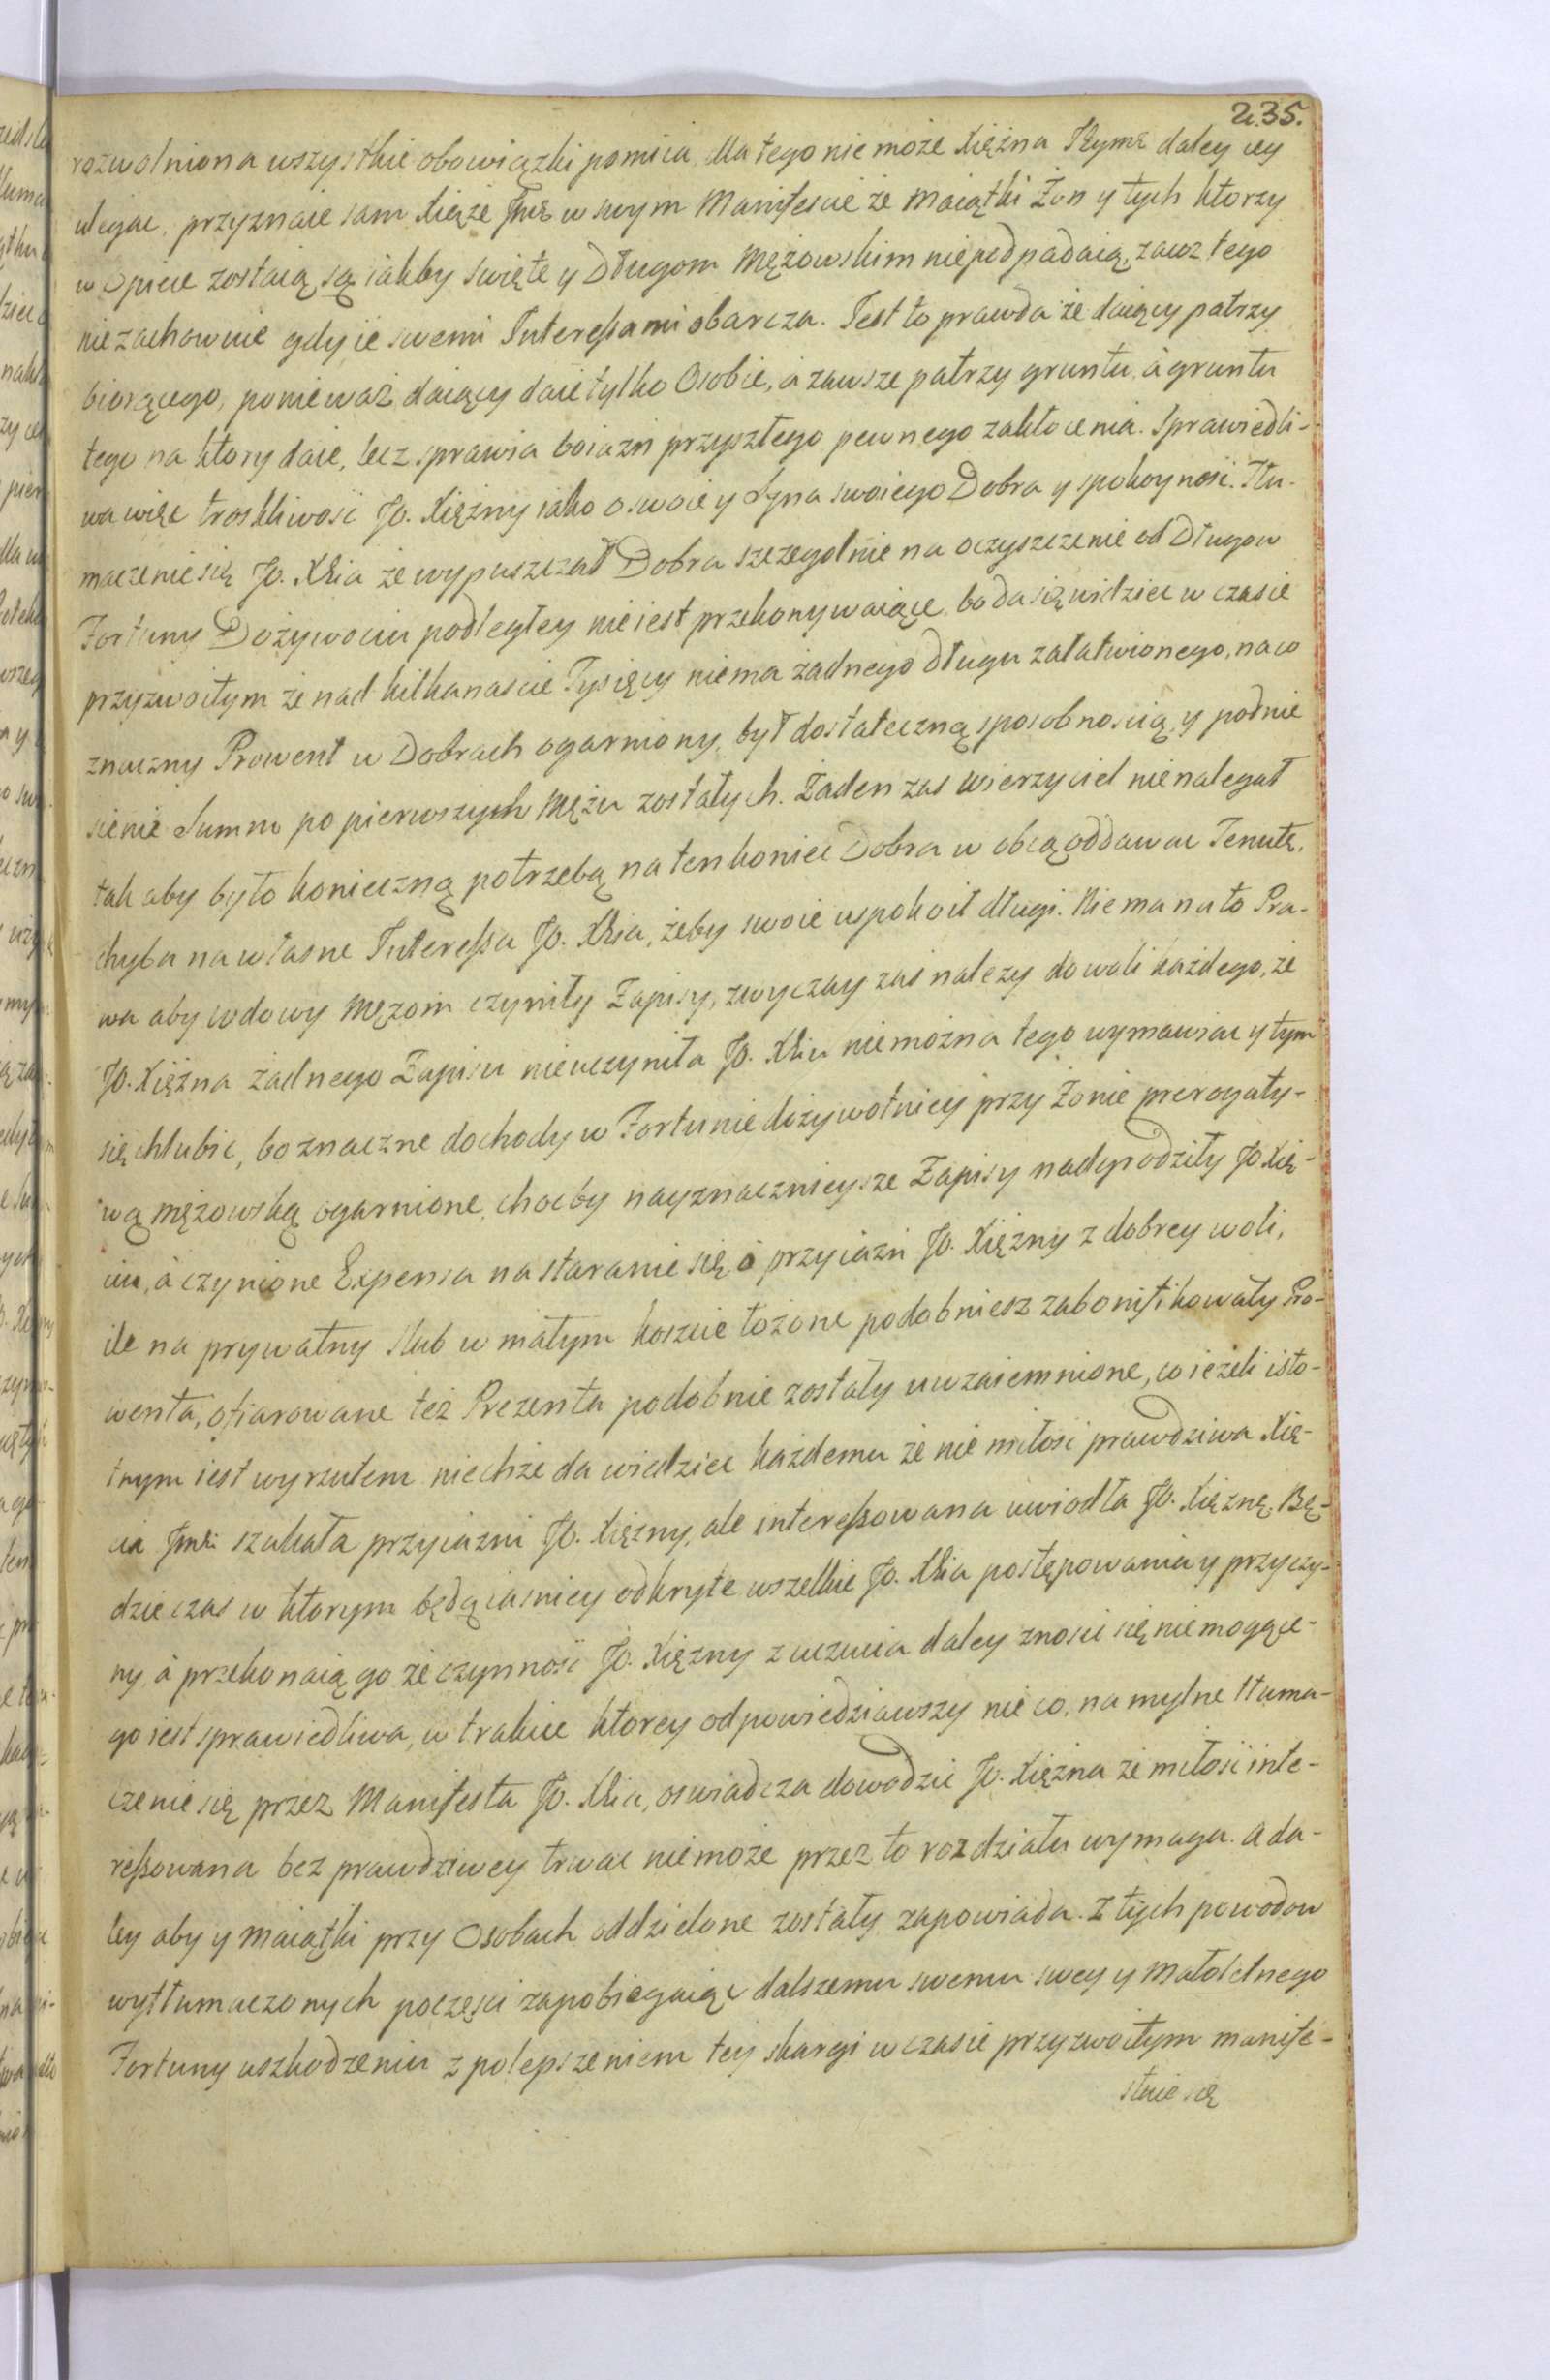 235.
rozwolniona wszystkie obowiązki pomiia, dla tego nie może Xiężna Jeymć daley iey
ulegac, przyznaie sam Xiąże Jmć w swym Manifescie że maiątki Żon y tych ktorzy
w Opiece zostaią są iakby swięte y Długom Mężowskim niepodpadaią, zawsz tego
niezachowuie gdy ie swemi Interessami obarcza. Jest to prawda że daiący patrzy
biorącego, ponieważ daiący daie tylko Osobie, á zawsze patrzy gruntu, á gruntu
tego na ktory daie, lecz sprawia boiazń przyszłego pewnego zakłocenia. Sprawiedli-
wa więc troskliwość Jo. Xiężny iako o swoie y Syna swoiego Dobra y spokoyność. Tłu-
maczenie się Jo. Xcia że wypuszczał Dobra szczegolnie na oczyszczenie od Długow
Fortuny Dożywociu podległey nieiest przekonywaiące, bo da się widziec w czasie
przyzwoitym że nad kilkanascie Tysięcy niema żadnego długu załatwionego, na co
znaczny Prowent w Dobrach ogarniony, był dostateczną sposobnoscią, y podnie
sienie Summ po pierwszych Mężu zostałych. Żaden zas Wierzyciel nienalegał
tak aby było konieczną potrzebą na ten koniec Dobra w obcą oddawac Tenutę,
chyba na własne Interessa Jo. Xcia, żeby swoie uspokoił długi. Niema na to Pra-
wa aby wdowy Mężom czyniły Zapisy, zwyczay zaś należy do woli każdego, że
Jo. Xiężna żadnego Zapisu nieuczyniła Jo. Xciu niemożna tego wymawiac y tym
się chlubic, bo znaczne dochody w Fortunie dożywotniey przy Żonie prerogaty-
wą mężowską ogarnione, chocby nayznacznieysze Zapisy nadgrodziły Jo Xię-
ciu, á czynione Expensa na staranie się o przyiazń Jo. Xiężny z dobrey woli,
ile na prywatny slub w małym koszcie łożone podobniesz zabonifikowały Pro-
wenta, ofiarowane też Prezenta podobnie zostały uwzaiemnione, co ieżeli isto-
tnym iest wyrzutem niechże da wiedziec każdemu że nie miłość prawdziwa Xię-
cia Jmci szukała przyiazni Jo. Xiężny, ale interessowana uwiodła Jo. Xiężnę. Bę-
dzie czas w ktorym będą iasniey odkryte wszelkie Jo. Xcia postępowania y przyczy-
ny, á przekonaią go że czynność Jo. Xiężny z uczucia daley znosic się niemogące-
go iest sprawiedliwa, w trakcie ktorey odpowiedziawszy nie co, na mylne tłuma-
czenie się przez Manifesta Jo. Xcia, oswiadcza dowodzic Jo. Xiężna że miłość inte-
ressowana bez prawdziwey trwac niemoże przez to rozdziału wymaga. A da-
ley aby y maiątki przy Osobach oddzielone zostały zapowiada. Z tych powodow
wytłumaczonych poczęsci zapobiegaiąc dalszemu swemu swey y małoletnego
Fortuny uszkodzeniu z polepszeniem tey skargi w czasie przyzwoitym manife-
stuie się